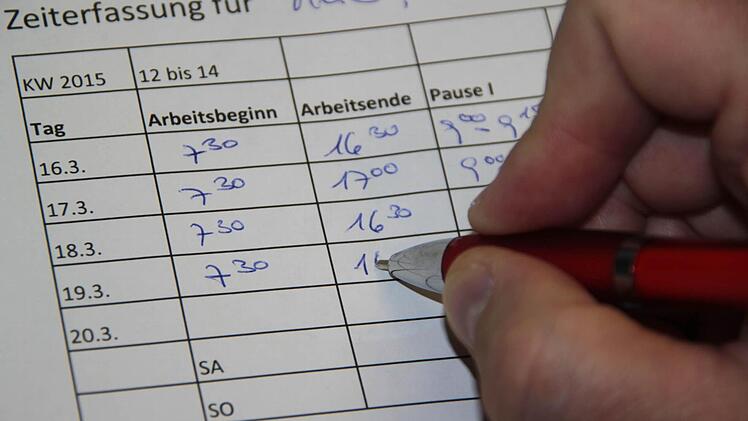 Zeiterfassung für
KW 2015 12 bis 14
Tag Arbeitsbeginn Arbeitsende Pause I
16.3. 7 30 16 30 9 00 - 9 15
17.3. 7 30 17 00 9 00
18.3. 7 30 16 30
19.3. 7 30 1
20.3.
SA
SO